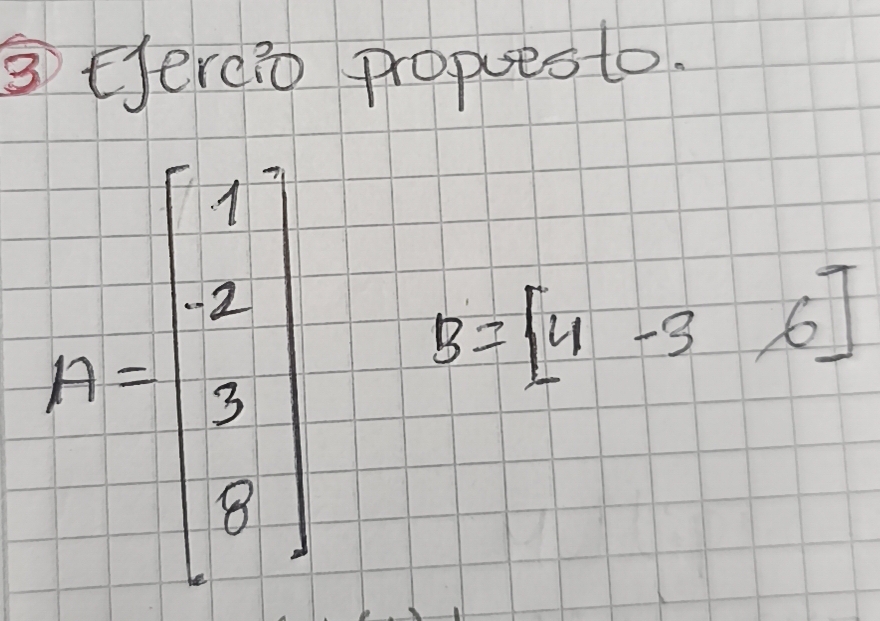 3 Ejercio propuesto.
1
-2
A = 3
8
B = [4 -3 6]